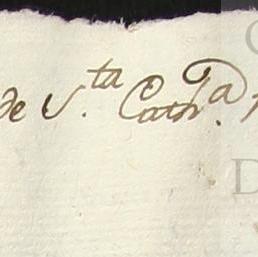 de S.ta Cathr.a